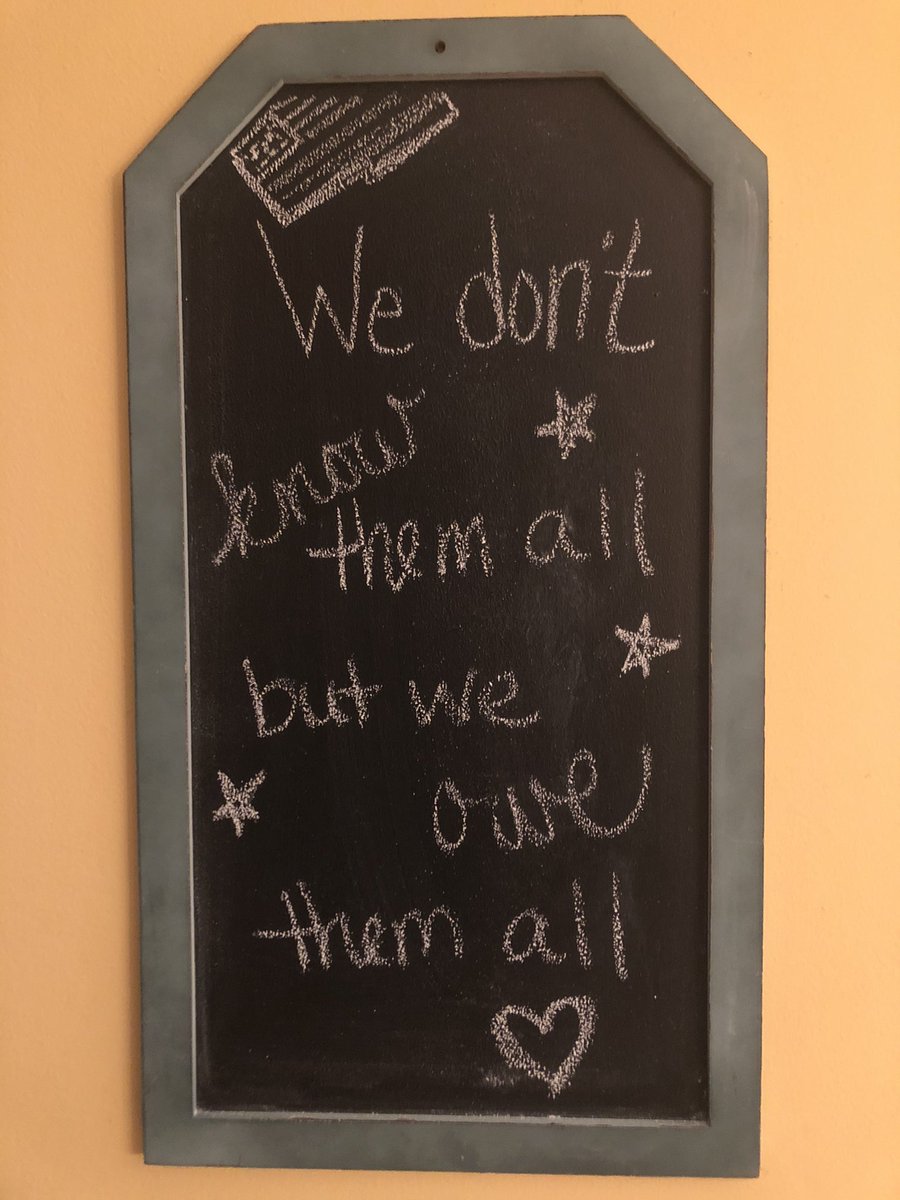 We don't
know
them all
but we
owe
them all